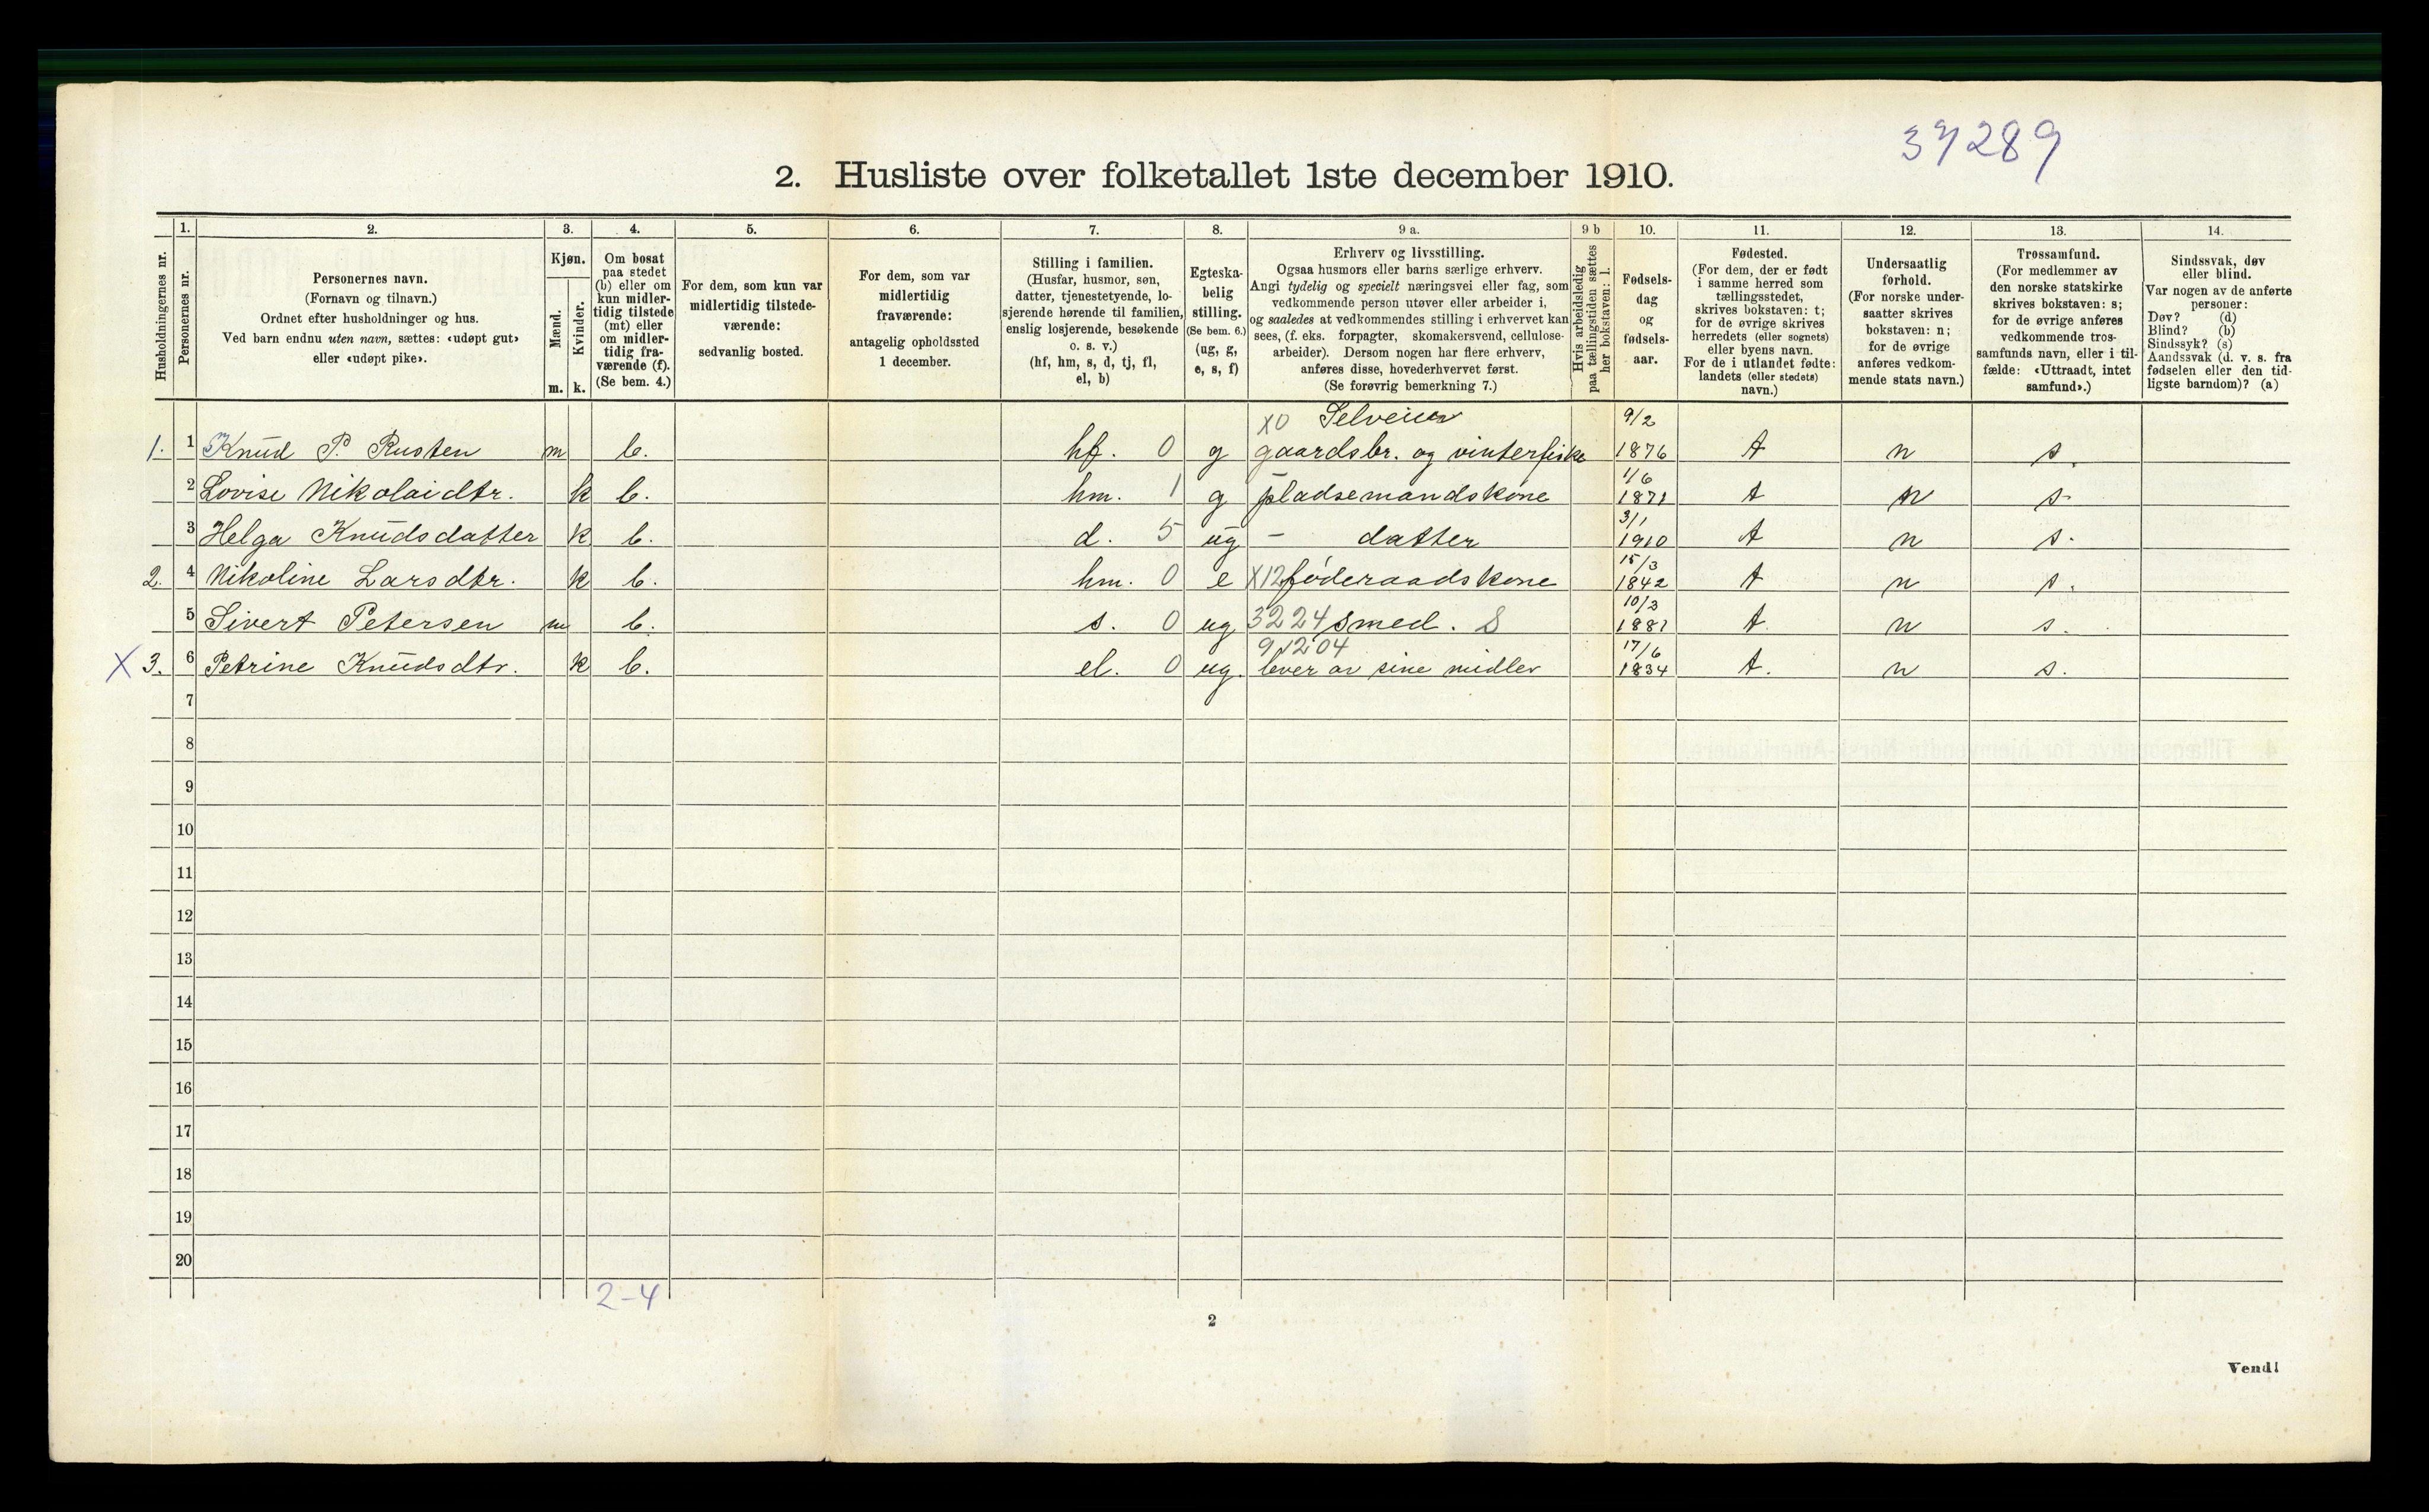 37289
2. Husliste over folketallet 1ste december 1910.
Husholdningernes nr.
1.
Personernes nr.
2.
Personernes navn.
(Fornavn og tilnavn.)
Ordnet efter husholdninger og hus.
Ved barn endnu uten navn, sættes: «udøpt gut»
eller «udøpt pike».
3.
Kjøn.
Mænd.
Kvinder.
m. k.
4.
Om bosat
paa stedet
(b) eller om
kun midler-
tidig tilstede
(mt) eller
om midler-
tidig fra-
værende (f).
(Se bem. 4.)
5.
For dem, som kun var
midlertidig tilstede-
værende:
sedvanlig bosted.
6.
For dem, som var
midlertidig
fraværende:
antagelig opholdssted
1 december.
7.
Stilling i familien.
(Husfar, husmor, søn,
datter, tjenestetyende, lo-
sjerende hørende til familien,
enslig losjerende, besøkende
o. s. v.)
(hf, hm, s, d, tj, fl,
el, b)
8.
Egteska-
belig
stilling.
(Se bem. 6.)
(ug, g,
e, s, f)
9 a.
Erhverv og livsstilling.
Ogsaa husmors eller barns særlige erhverv.
Angi tydelig og specielt næringsvei eller fag, som
vedkommende person utøver eller arbeider i,
og saaledes at vedkommendes stilling i erhvervet kan
sees, (f. eks. forpagter, skomakersvend, cellulose-
arbeider). Dersom nogen har flere erhverv,
anføres disse, hovederhvervet først.
(Se forøvrig bemerkning 7.)
9 b
Hvis arbeidsledig
paa tællingstiden sættes
her bokstaven: l.
10.
Fødsels-
dag
og
fødsels-
aar.
11.
Fødested.
(For dem, der er født
i samme herred som
tællingsstedet,
skrives bokstaven: t;
for de øvrige skrives
herredets (eller sognets)
eller byens navn.
For de i utlandet fødte:
landets (eller stedets)
navn.)
12.
Undersaatlig
forhold.
(For norske under-
saatter skrives
bokstaven: n;
for de øvrige
anføres vedkom-
mende stats navn.)
13.
Trossamfund.
(For medlemmer av
den norske statskirke
skrives bokstaven: s;
for de øvrige anføres
vedkommende tros-
samfunds navn, eller i til-
fælde: «Uttraadt, intet
samfund».)
14.
Sindssvak, døv
eller blind.
Var nogen av de anførte
personer:
Døv? (d)
Blind? (b)
Sindssyk? (s)
Aandssvak (d. v. s. fra
fødselen eller den tid-
ligste barndom)? (a)
X0 Selveier 9/2
1. 1 Knud P. Rusten m b. hf. 0 g gaardsbr. og vinterfiske 1876 t n s.
2 Lovise Nikolaidtr. k b. hm. 1 g pladsemandskone 1/6 1871 t n s.
3 Helga Knudsdatter k b. d. 5 ug - datter 3/1 1910 t n s.
2. 4 Nikoline Larsdtr. k b. hm. 0 e X12 føderaadskone 15/3 1842 t n s.
5 Sivert Petersen m b. s. 0 ug 3224 smed. S 10/3 1881 t n s.
91204
X 3. 6 Petrine Knudsdtr. k b. el. 0 ug. lever av sine midler 17/6 1834 t. n s.
7
8
9
10
11
12
13
14
15
16
17
18
19
20
2-4
2
Vend!